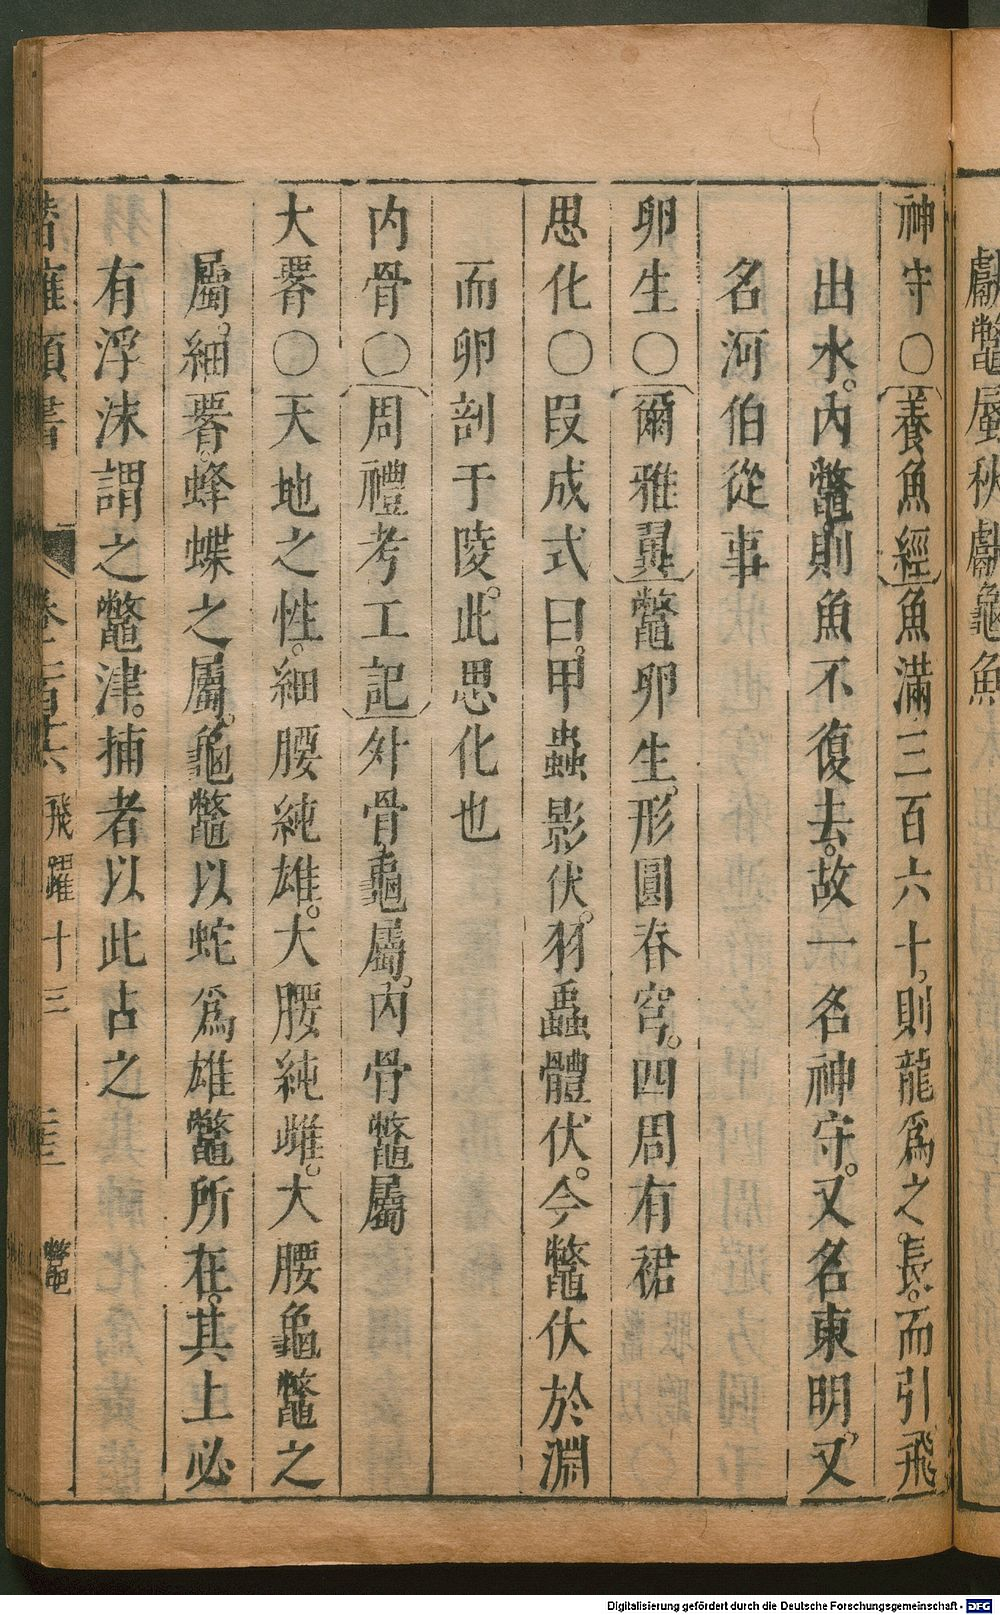 獻鼈蜃秋獻龜魚
神守〇〔養魚經〕魚滿三百六十。則龍爲之長。而引飛
出水。內鼈則魚不復去。故一名神守。又名東明。又
名河伯從事
卵生〇〔爾雅翼〕鼈卵生。形圓脊穹。四周有裙
思化〇段成式曰。甲蟲影伏。羽蟲體伏。今鼈伏於淵
而卵剖于陵。此思化也
內骨〇〔周禮考工記〕外骨龜屬。內骨鼈屬
大䏿〇天地之性。細腰純雄。大腰純雌。大腰龜鼈之
屬。細䏿。蜂蝶之屬。龜鼈以蛇爲雄鼈所在。其上必
有浮沫謂之鼈津。捕者以此占之
潛確類書 卷一百十六 飛躍十三 鼈
Digitalisierung gefördert durch die Deutsche Forschungsgemeinschaft - DFG